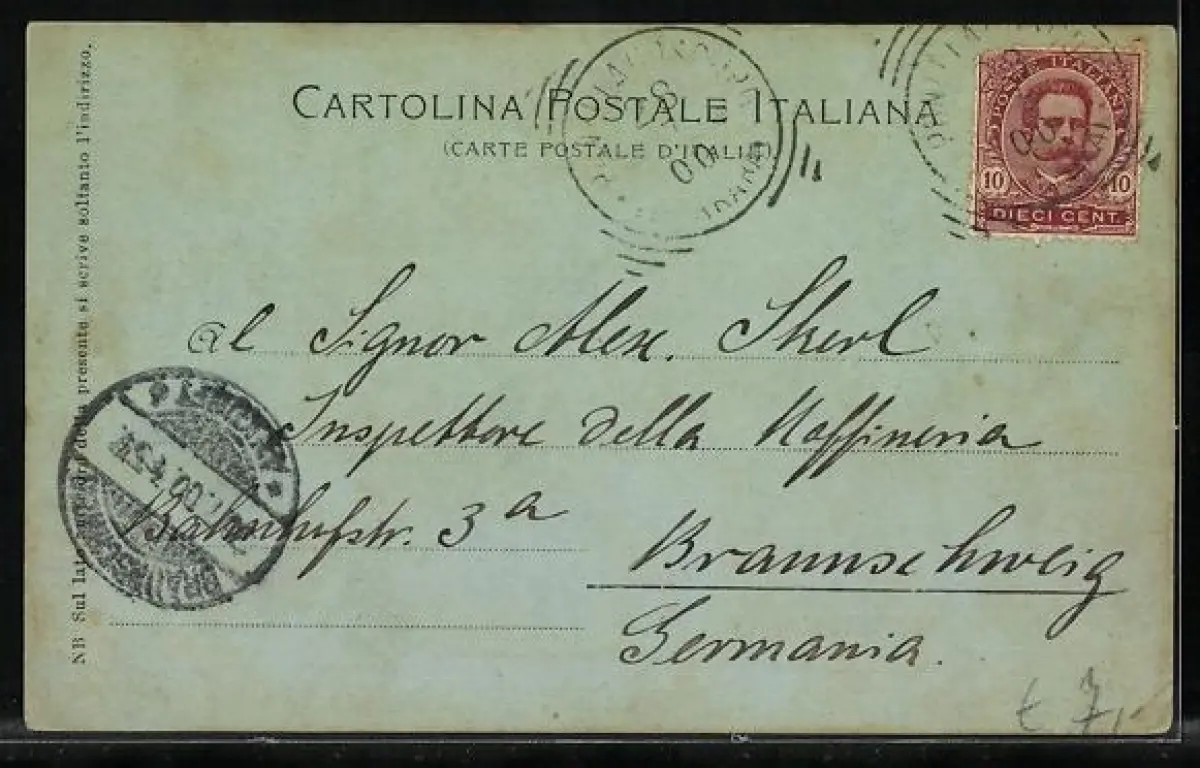 CARTOLINA POSTALE ITALIANA
(CARTE POSTALE D'ITALIE)
POSTE ITALIANE
10 10
DIECI CENT.
00
al Signor Alex. Skerl
Inspettore della Raffineria
Bahnhofstr. 3a
Braunschweig
Germania.
NB Sul lato della presente si scrive soltanto l'indirizzo.
t 7,